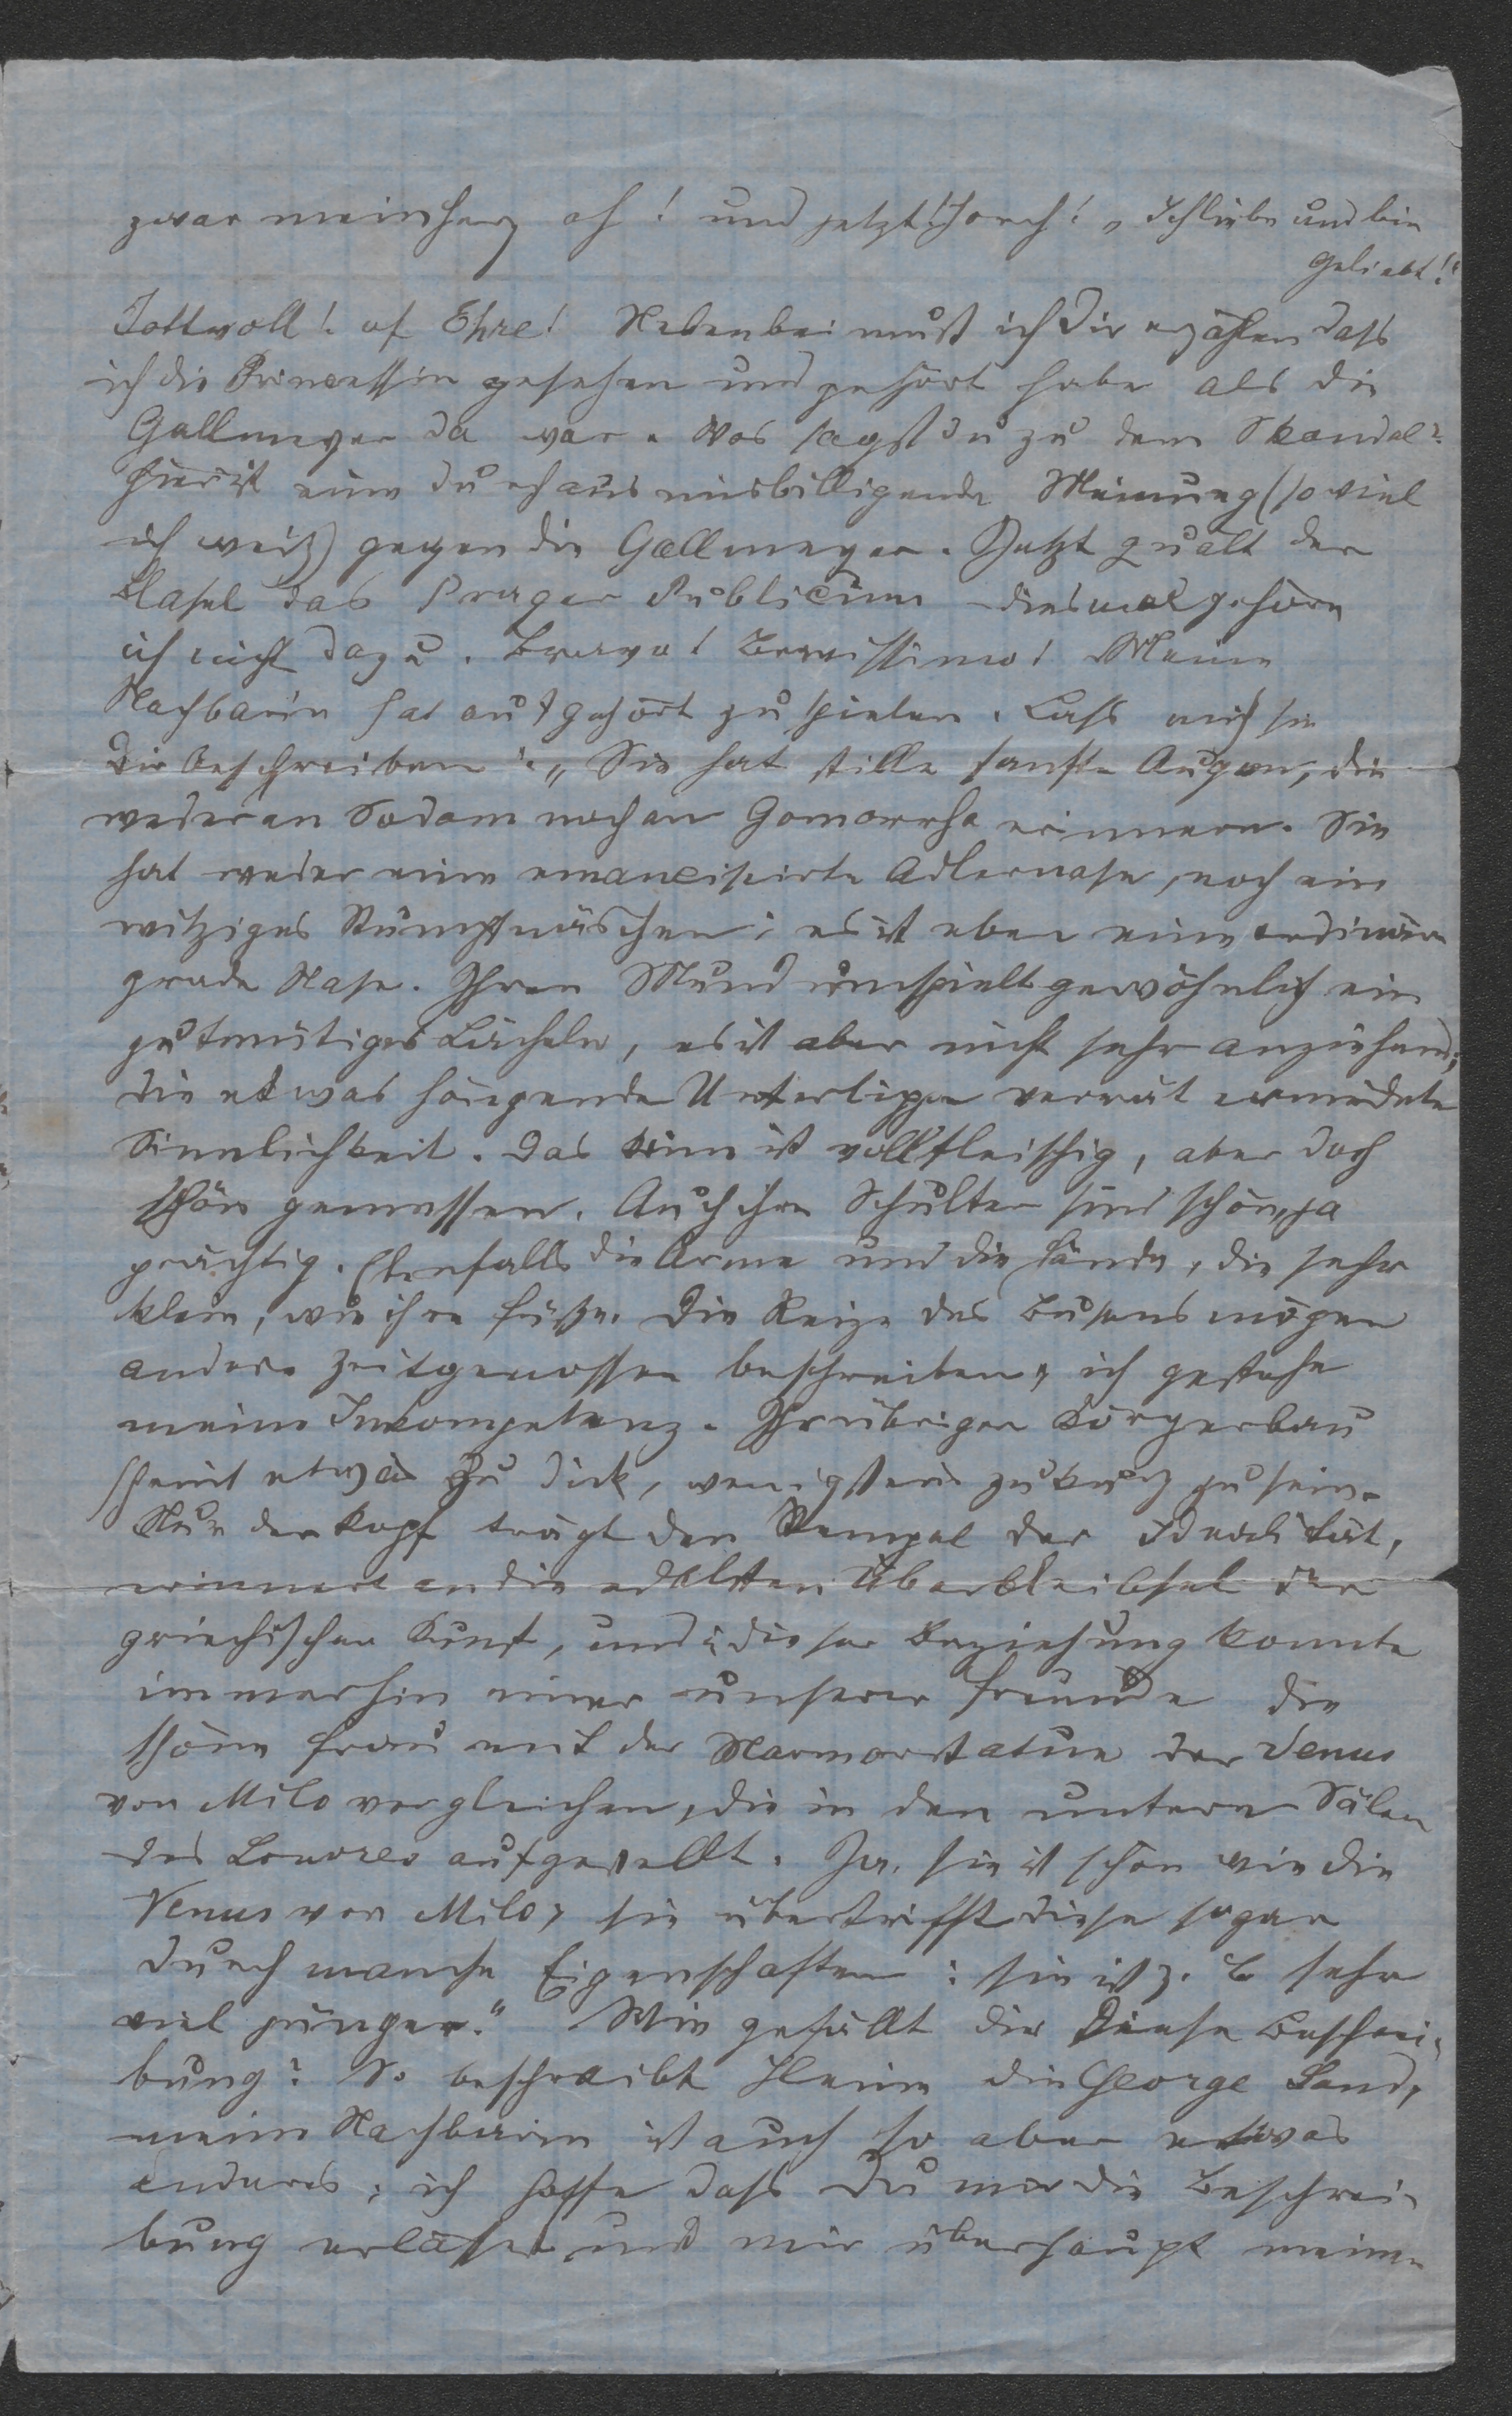 zwar mein Herz oh! und jetzt! Horch! „Ich liebe und bin
geliebt!“
Jottvoll! uf Ehre! Nebenbei muß ich Dir erzählen dass
ich die Princessin gesehen und gehört habe als die
Gallmeyer da war. Was sagst du zu dem Skandal?
Hier ist eine durchaus misbilligende Meinung (so viel
ich weiß) gegen die Gallmeyer. Jetzt quält der
Blasel das Prager Publicum diesmal gehöre
ich nicht dazu. Bravo! Bravissimo! Meine
Nachbarin hat aufgehört zu spielen. Lass mich sie
Dir beschreiben: „Sie hat stille sanfte Augen, die
weder an Sodom noch an Gomorrha erinnern. Sie
hat weder eine emancipirte Adlernase, noch ein
witziges Stumpfnäschen; es ist eben eine ordinäre
grade Nase. Ihren Mund umspielt gewöhnlich ein
gutmütiges Lächeln, es ist aber nicht sehr anziehend;
die etwas hängende Unterlippe verrät ermüdete
Sinnlichkeit. Das Kinn ist vollfleischig, aber doch
schön gemessen. Auch ihre Schultern sind schön, ja
prächtig. Ebenfalls die Arme und die Hände, die sehr
klein, wie ihre Füße. Die Reize des Busens mögen
andere Zeitgenossen beschreiben, ich gestehe
meine Inkompetenz. Ihr übriger Körperbau
scheint etwas zu dick, wenigstens zu kurz zu sein.
Nur der Kopf trägt den Stempel der Idealität,
erinnert an die edelsten Überbleibsel der
griechischen Kunst, und in dieser Beziehung konnte
immerhin einer unserer Freunde die
schöne Frau mit der Marmorstatue der Venus
von Milo vergleichen, die in den untern Sälen
des Louvres aufgestellt. Ja, sie ist schön wie die
Venus von Milo, sie übertrifft diese sogar
durch manche Eigenschaften: sie ist z. B sehr
viel jünger.“ Wie gefällt dir Diese Beschrei-
bung? So beschreibt Heine die George Sand,
meine Nachbarin ist auch so aber etwas
anders; ich hoffe dass Du mir die Beschrei-
bung erlassen und mir überhaupt meine